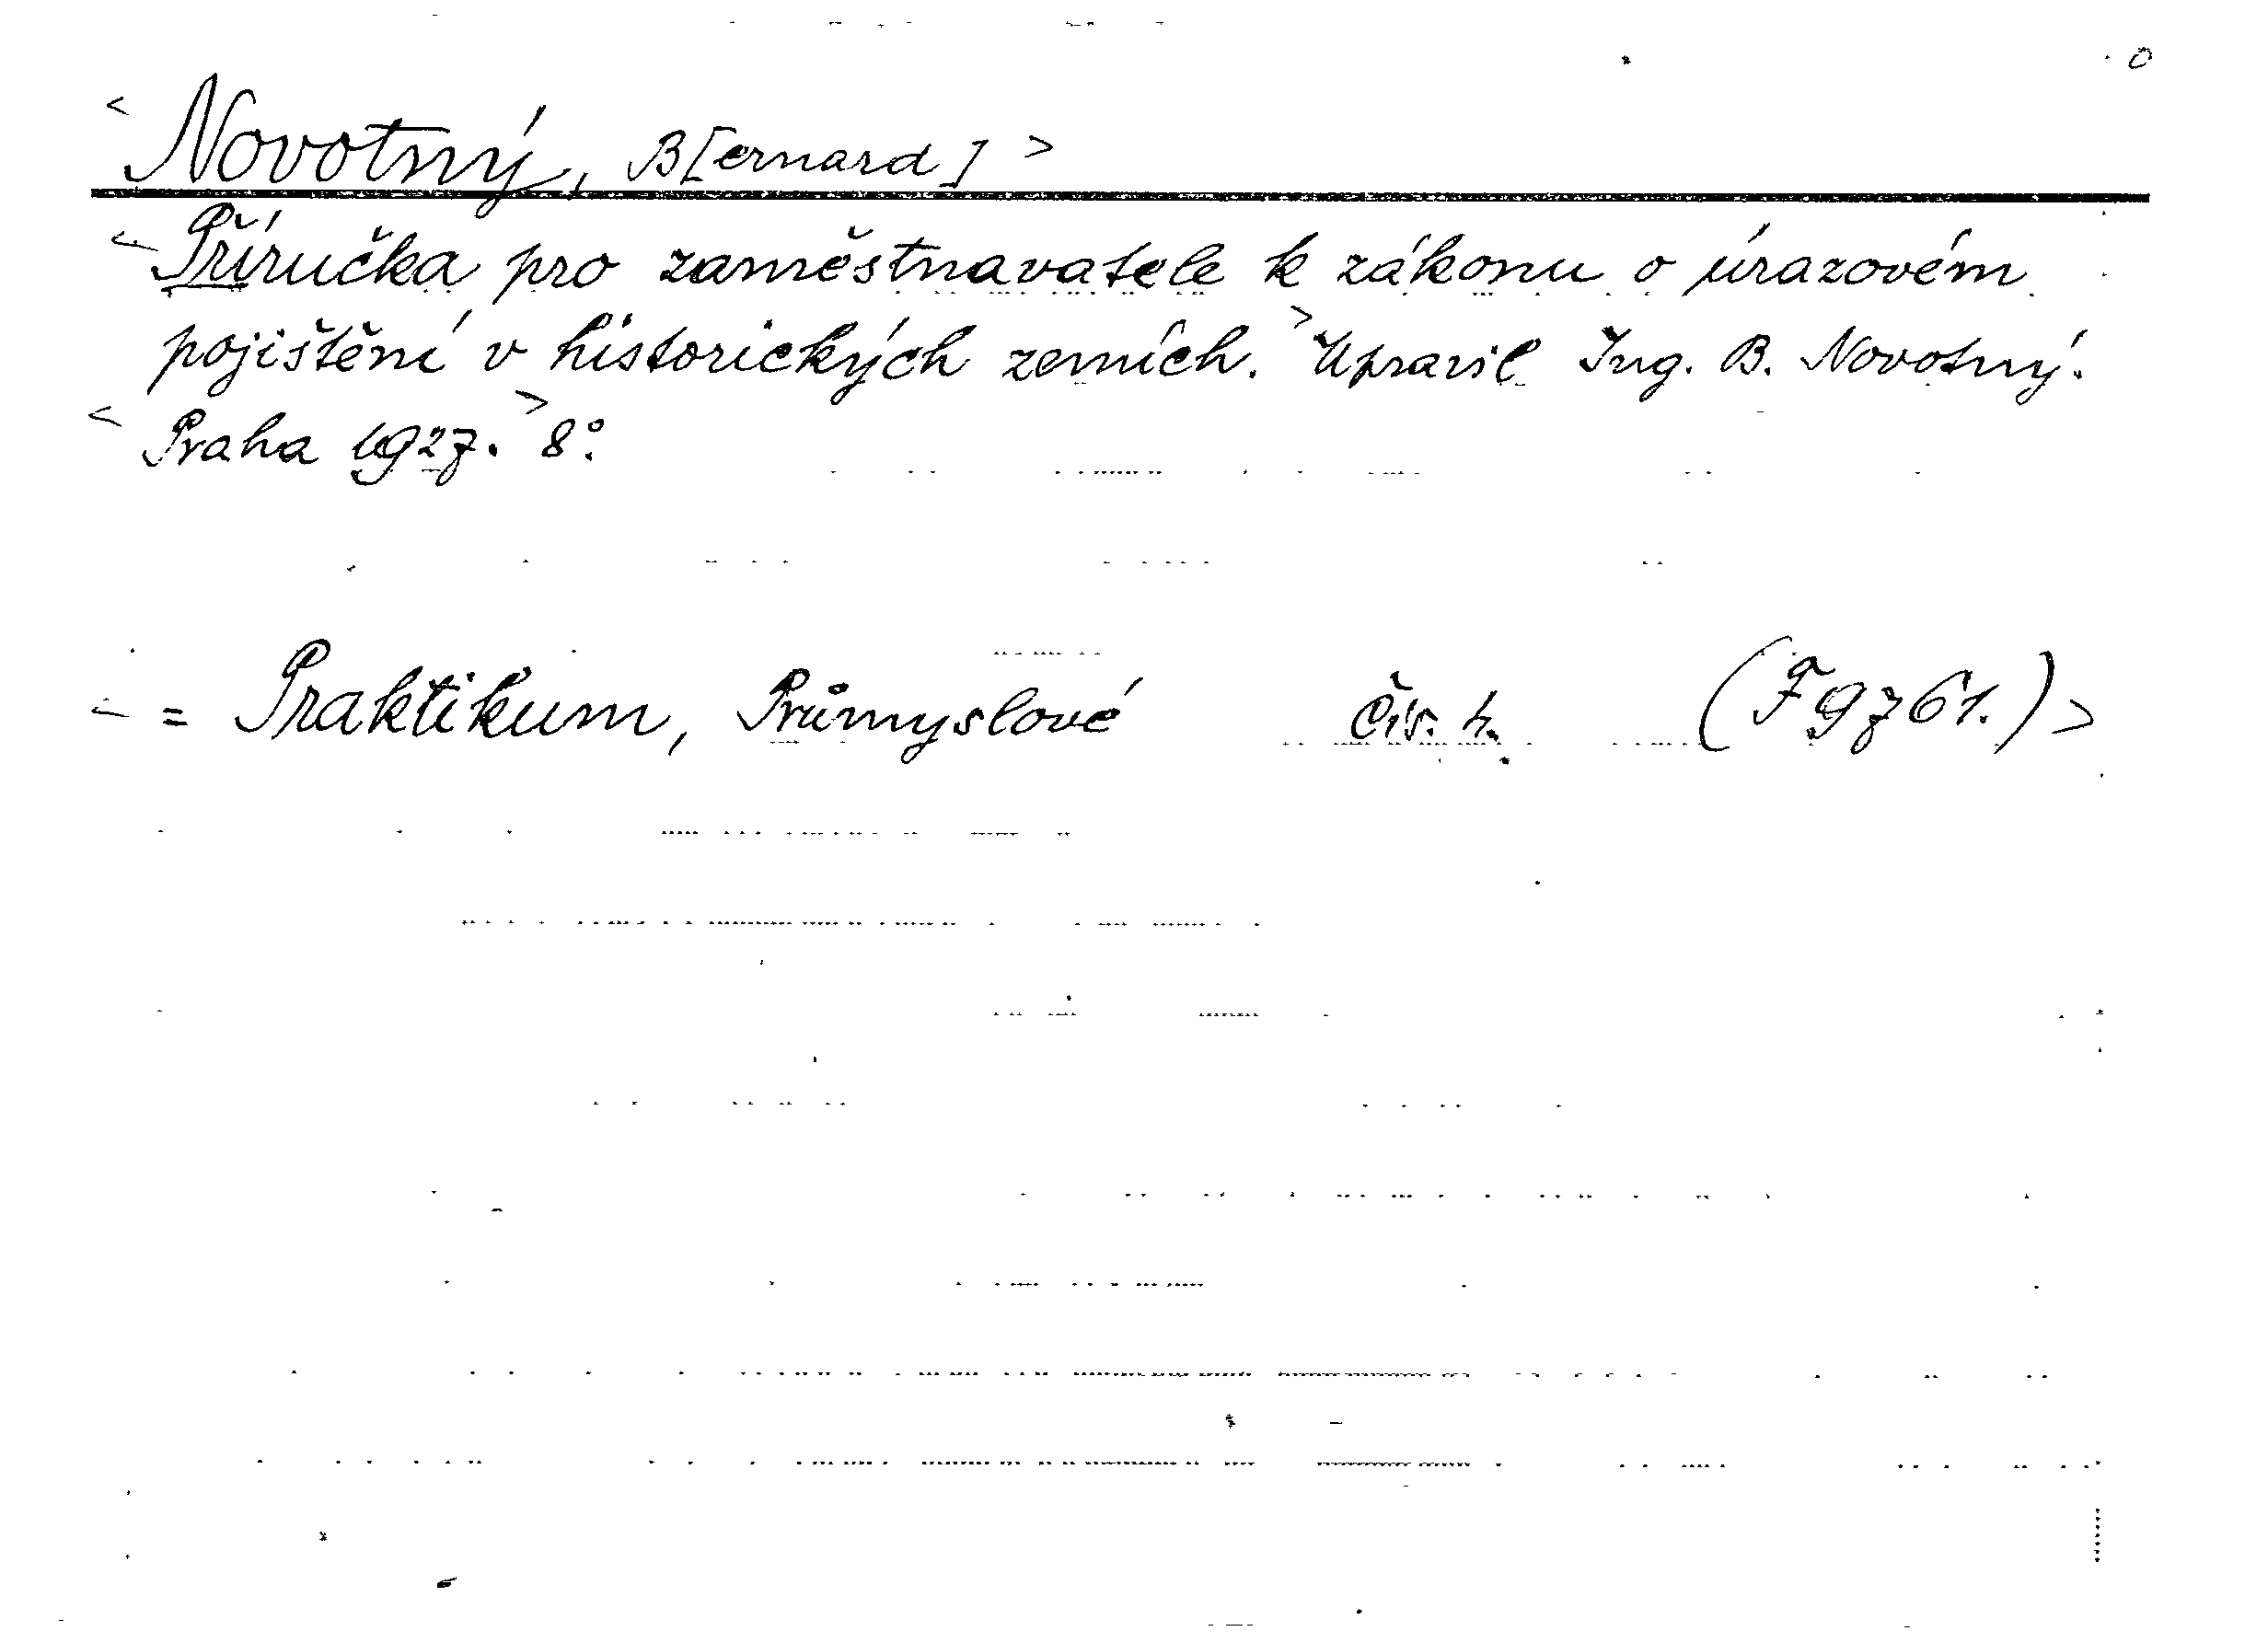 < Novotný, B[ernard] >
< Příručka pro zaměstnavatele k zákonu o úrazovém
pojištění v historických zemích. > Upravil Ing. B. Novotný.
< Praha 1927. > 8°.
< = Praktikum, Průmyslové Čís. 4. (F 9761.) >